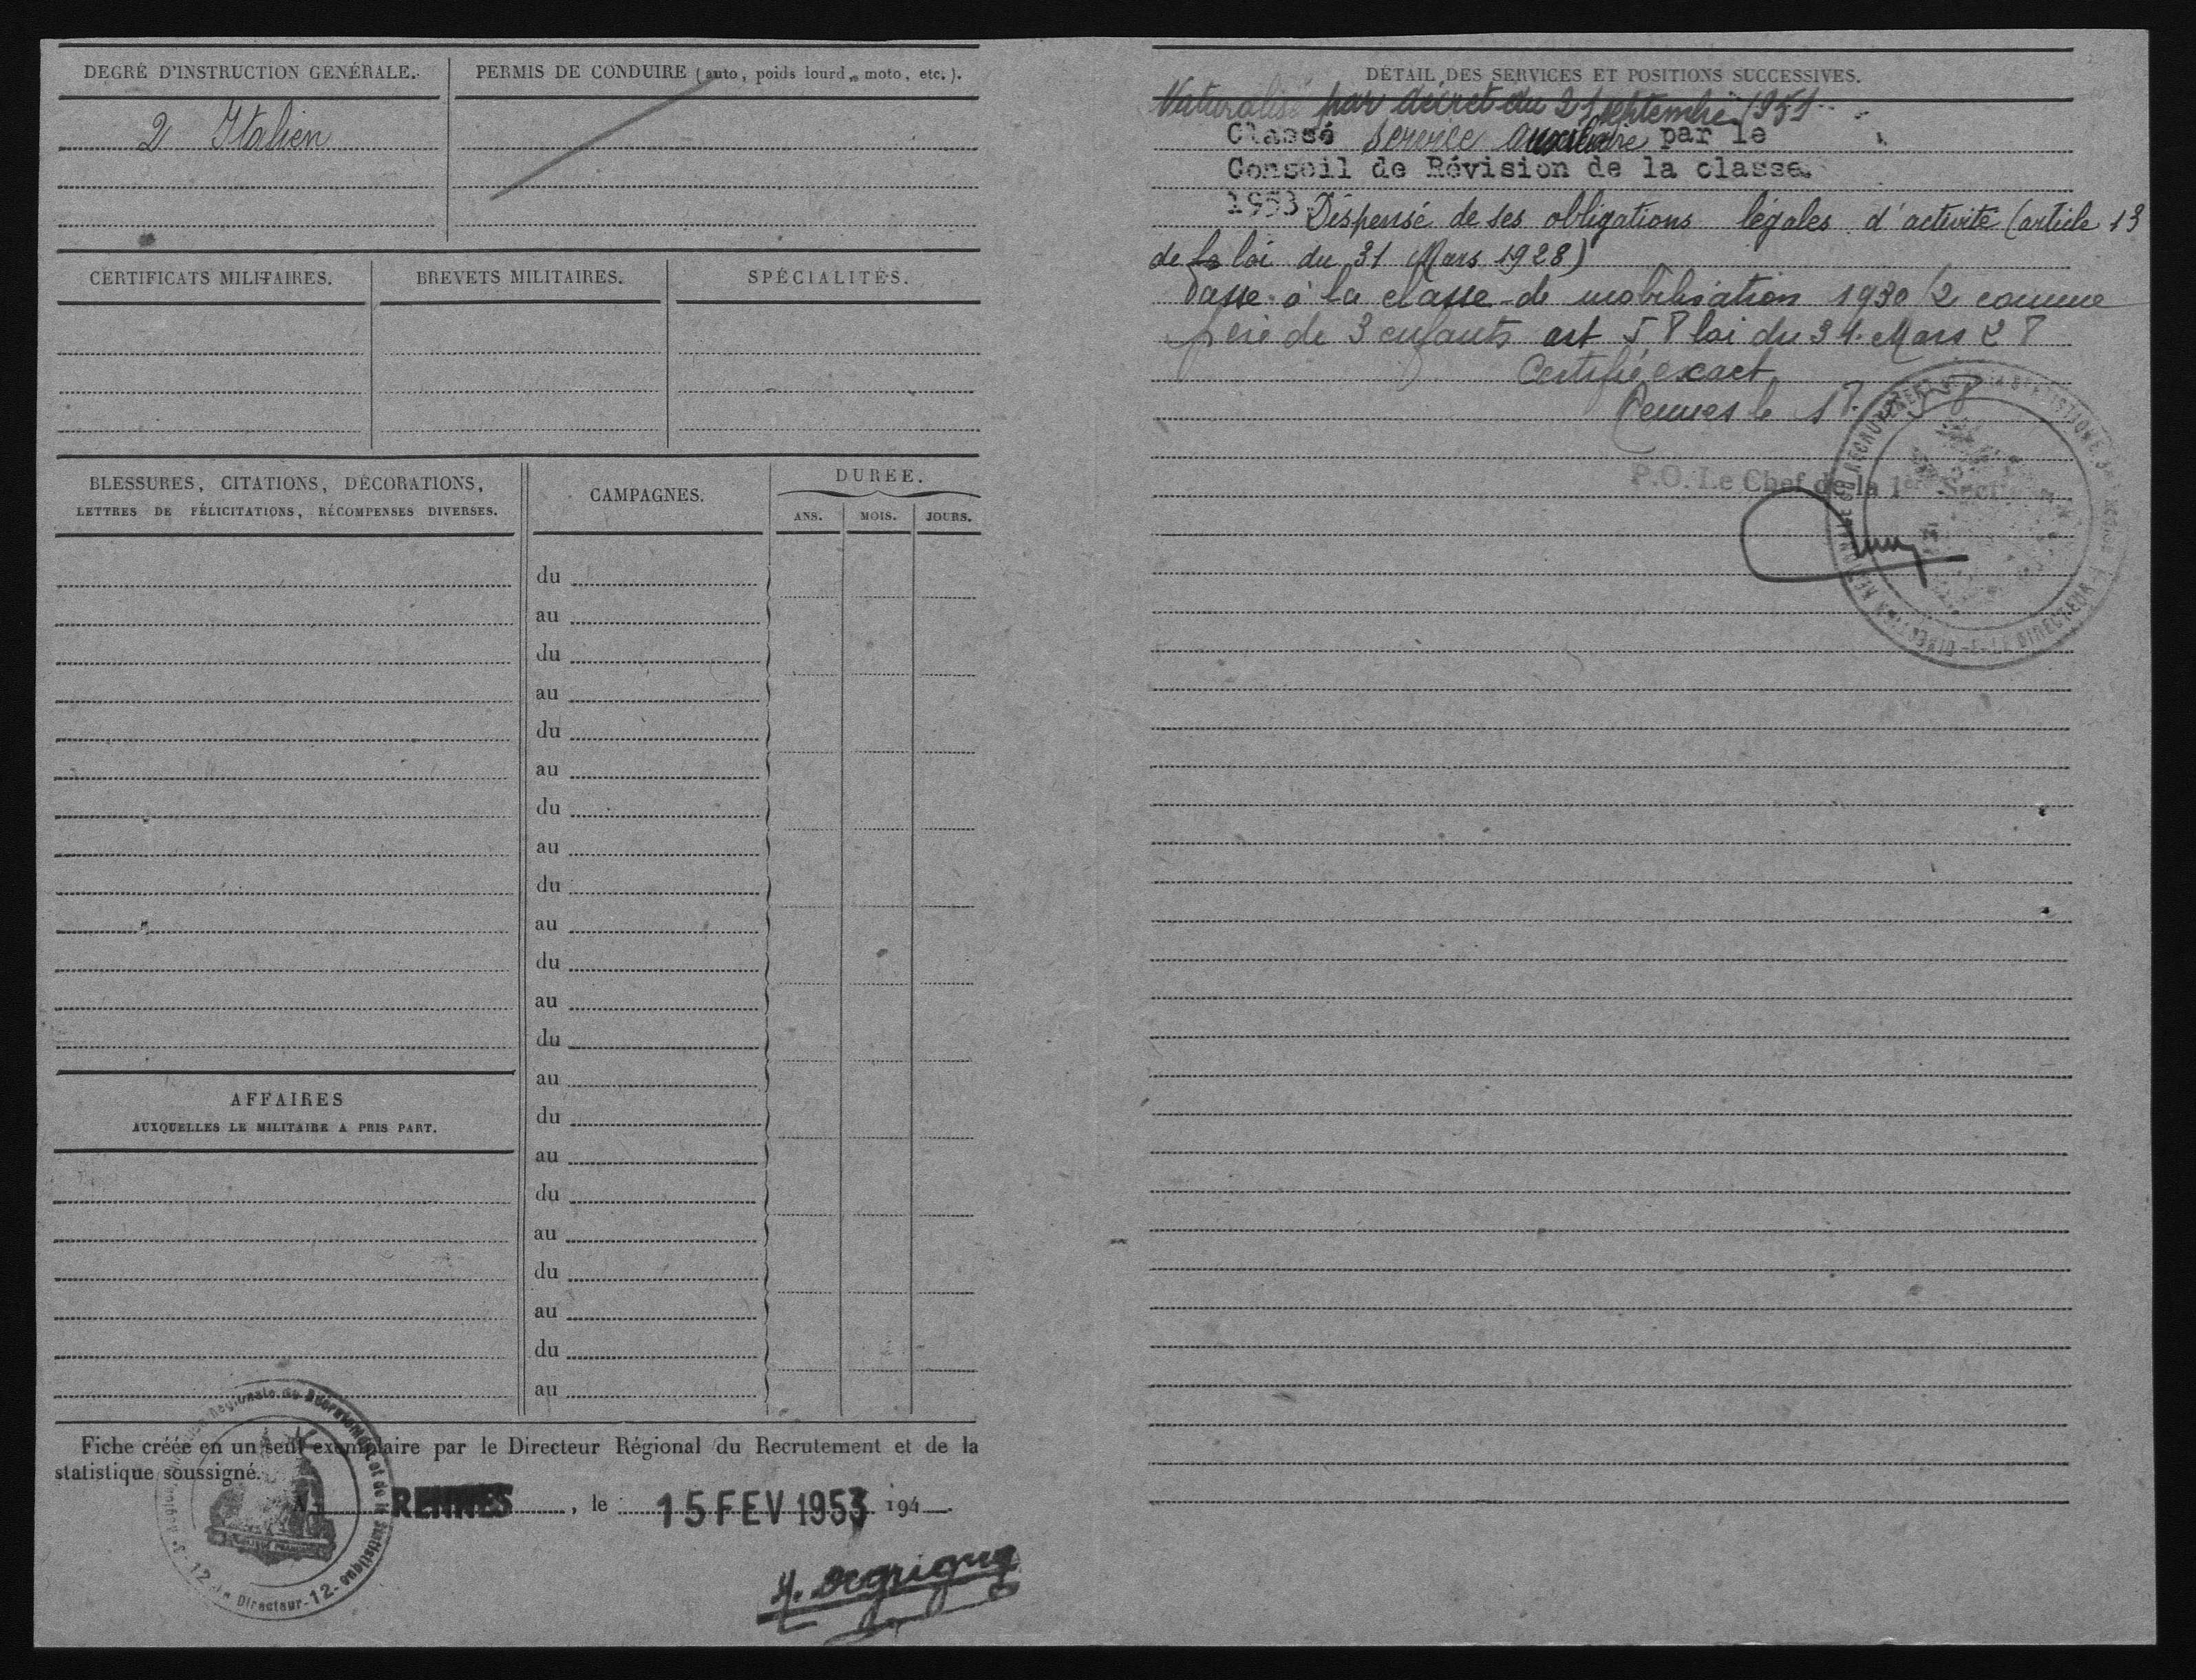 DEGRÉ D'INSTRUCTION GÉNÉRALE.
2 Italien
PERMIS DE CONDUIRE (auto, poids lourd, moto, etc.).
CERTIFICATS MILITAIRES.
BREVETS MILITAIRES.
SPÉCIALITÉS.
BLESSURES, CITATIONS, DÉCORATIONS,
LETTRES DE FÉLICITATIONS, RÉCOMPENSES DIVERSES.
CAMPAGNES.
DURÉE.
ANS. MOIS. JOURS.
du
au
du
au
du
au
du
au
du
au
du
au
du
au
du
au
du
au
du
au
du
au
AFFAIRES
AUXQUELLES LE MILITAIRE A PRIS PART.
Fiche créée en un seul exemplaire par le Directeur Régional du Recrutement et de la
statistique soussigné.
RENNES, le 15 FEV 1953 194
Régionale du Recrutement et de la Statistique -12- Le Directeur -12-
DÉTAIL DES SERVICES ET POSITIONS SUCCESSIVES.
Naturalisé par décret du 21 septembre 1951
Classé service auxiliaire par le
Conseil de Révision de la classe
1953 Dispensé de ses obligations légales d'activité (article 13
de la loi du 31 Mars 1928)
Passe à la classe de mobilisation 1930/2 comme
père de 3 enfants art 58 loi du 31 Mars 28
Certifié exact
Rennes le
P.O. Le Chef de la 1ère Sect
DU RECRUTEMENT LE DIRECTEUR